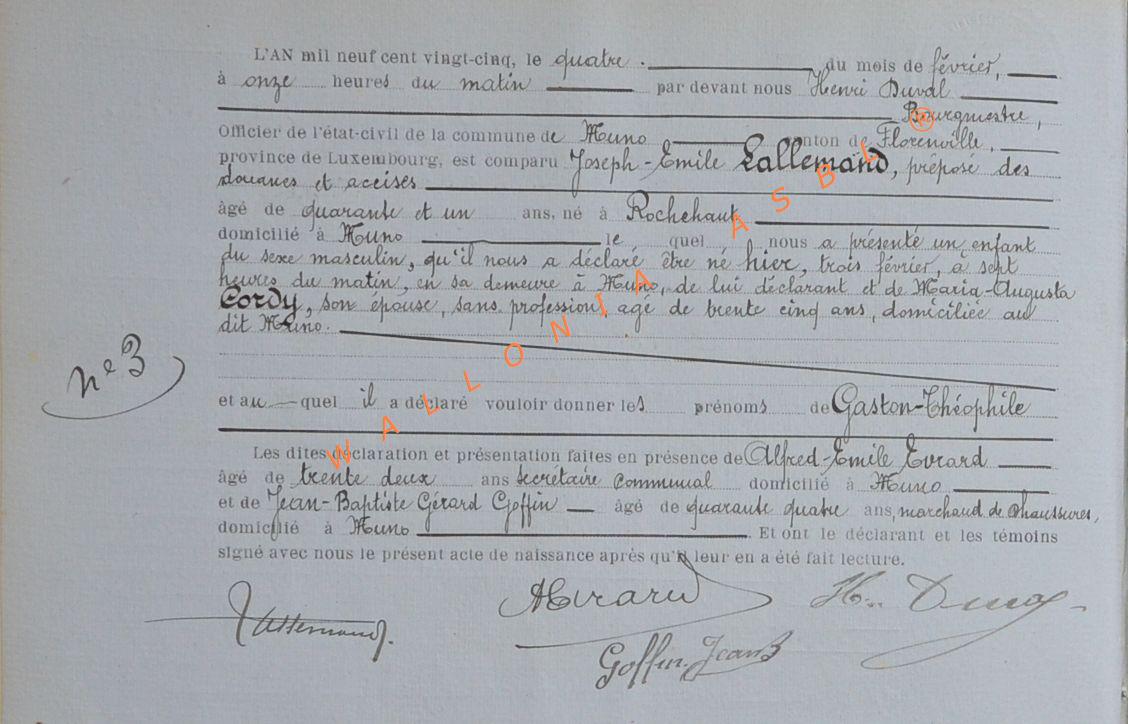 L'AN mil neuf cent vingt-cinq, le quatre. du mois de février,
à onze heures du matin par devant nous Henri Duval
Bourgmestre,
Officier de l'état-civil de la commune de Muno canton de Florenville,
province de Luxembourg, est comparu Joseph-Emile Lallemand, préposé des
douanes et accises
âgé de quarante et un ans, né à Rochehaut
domicilié à Muno le quel nous a présenté un enfant
du sexe masculin, qu'il nous a déclaré être né hier, trois février, à sept
heures du matin, en sa demeure à Muno, de lui déclarant et de Maria-Augusta
Cordy, son épouse, sans profession, agé de trente cinq ans, domiciliée au
dit Muno.
n° 3
et au quel il a déclaré vouloir donner les prénoms de Gaston-Théophile
Les dites déclaration et présentation faites en présence de Alfred-Emile Evrard
âgé de trente deux ans secrétaire communal domicilié à Muno
et de Jean-Baptiste Gérard Goffin âgé de quarante quatre ans, marchand de chaussures,
domicilié à Muno. Et ont le déclarant et les témoins
signé avec nous le présent acte de naissance après qu'il leur en a été fait lecture.
Lallemand. AEvrard H. Duval
Goffin. Jean B
WALLONIA ASBL ®